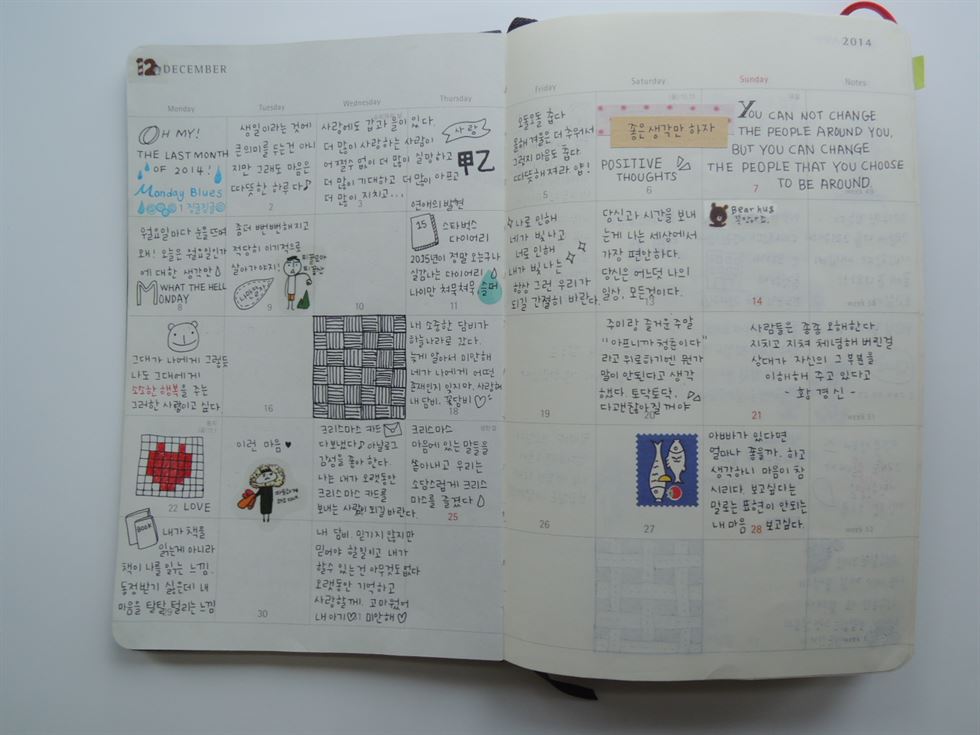 12 DECEMBER
2014
Monday
Tuesday
Wednesday
Thursday
Friday
Saturday
Sunday
Notes
OH MY!
THE LAST MONTH
OF 2014!
Monday Blues
1 징글징글
생일이라는 것에
큰의미를 두는건 아니
지만 그래도 마음은
따뜻한 하루다♪
2
사랑에도 갑과 을이 있다.
더 많이 사랑하는 사람이
어쩔수 없이 더 많이 실망하고
더 많이 기대하고 더 많이 아프고
더 많이 지치고...
3
사랑
甲乙
오들오들 춥다
올해 겨울은 더 추워서
그런지 마음도 춥다.
따뜻해져라. 얍!
5
좋은생각만 하자
POSITIVE
THOUGHTS
6
YOU CAN NOT CHANGE
THE PEOPLE AROUND YOU,
BUT YOU CAN CHANGE
THE PEOPLE THAT YOU CHOOSE
TO BE AROUND
7
월요일마다 눈을뜨며
왜! 오늘은 월요일인가
에 대한 생각만
WHAT THE HELL
MONDAY
8
좀더 뻔뻔해지고
적당히 이기적으로
살아가야지!
9
10
연애의 발견
15 스타벅스
다이어리
2015년이 정말 오는구나
실감나는 다이어리
나이만 쳐묵쳐묵 슬퍼
11
나로 인해
네가 빛나고
너로 인해
내가 빛나는
항상 그런 우리가
되길 간절히 바란다.
당신과 시간을 보내
는게 나는 세상에서
가장 편안하다.
당신은 어느덧 나의
일상, 모든것이다.
13
Bear hug
14
그대가 나에게 그렇듯
나도 그대에게
소소한 행복을 주는
그러한 사람이고 싶다
16
내 소중한 담비가
하늘나라로 갔다.
늦게 알아서 미안해
네가 나에게 어떤
존재인지 잊지마, 사랑해
내 담비. 꽃담비♡
18
19
주미랑 즐거운 주말
"아프니까 청춘이다"
라고 위로하기엔 뭔가
말이 안된다고 생각
했다. 토닥토닥.
다괜찮아질꺼야
20
사람들은 종종 오해한다.
지치고 지쳐 체념해 버린걸
상대가 자신의 그 부분을
이해해 주고 있다고
- 황경신 -
21
22 LOVE
이런 마음♥
크리스마스 카드
다보냈다♪ 아날로그
감성을 좋아 한다.
나는 내가 오랫동안
크리스마스 카드를
보내는 사람이 되길 바란다.
크리스마스
마음에 있는 말들을
쏟아내고 우리는
소담스럽게 크리스
마스를 즐겼다
25
26
27
아빠가 있다면
얼마나 좋을까. 하고
생각하니 마음이 참
시리다. 보고싶다는
말로는 표현이 안되는
내 마음 보고싶다.
28
BOOK
내가 책을
읽는게 아니라
책이 나를 읽는 느낌.
동정받기 싫은데 내
마음을 탈탈 털리는 느낌
30
내 담비. 믿기지 않지만
믿어야 할 것이고 내가
할수 있는건 아무것도 없다
오랫동안 기억하고
사랑할께. 고마웠어
내 아기♡ 미안해♡